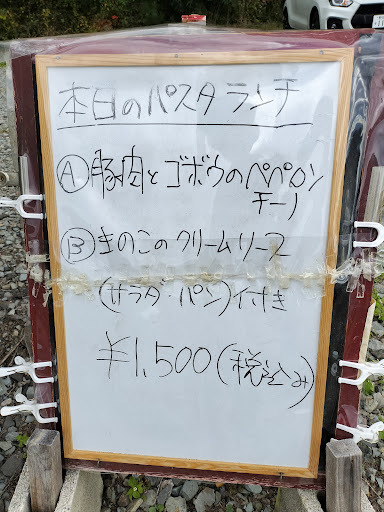 本日のパスタランチ
Ⓐ豚肉とゴボウのペペロン
チーノ
Ⓑきのこのクリームソース
(サラダ・パン)付き
¥1,500(税込み)